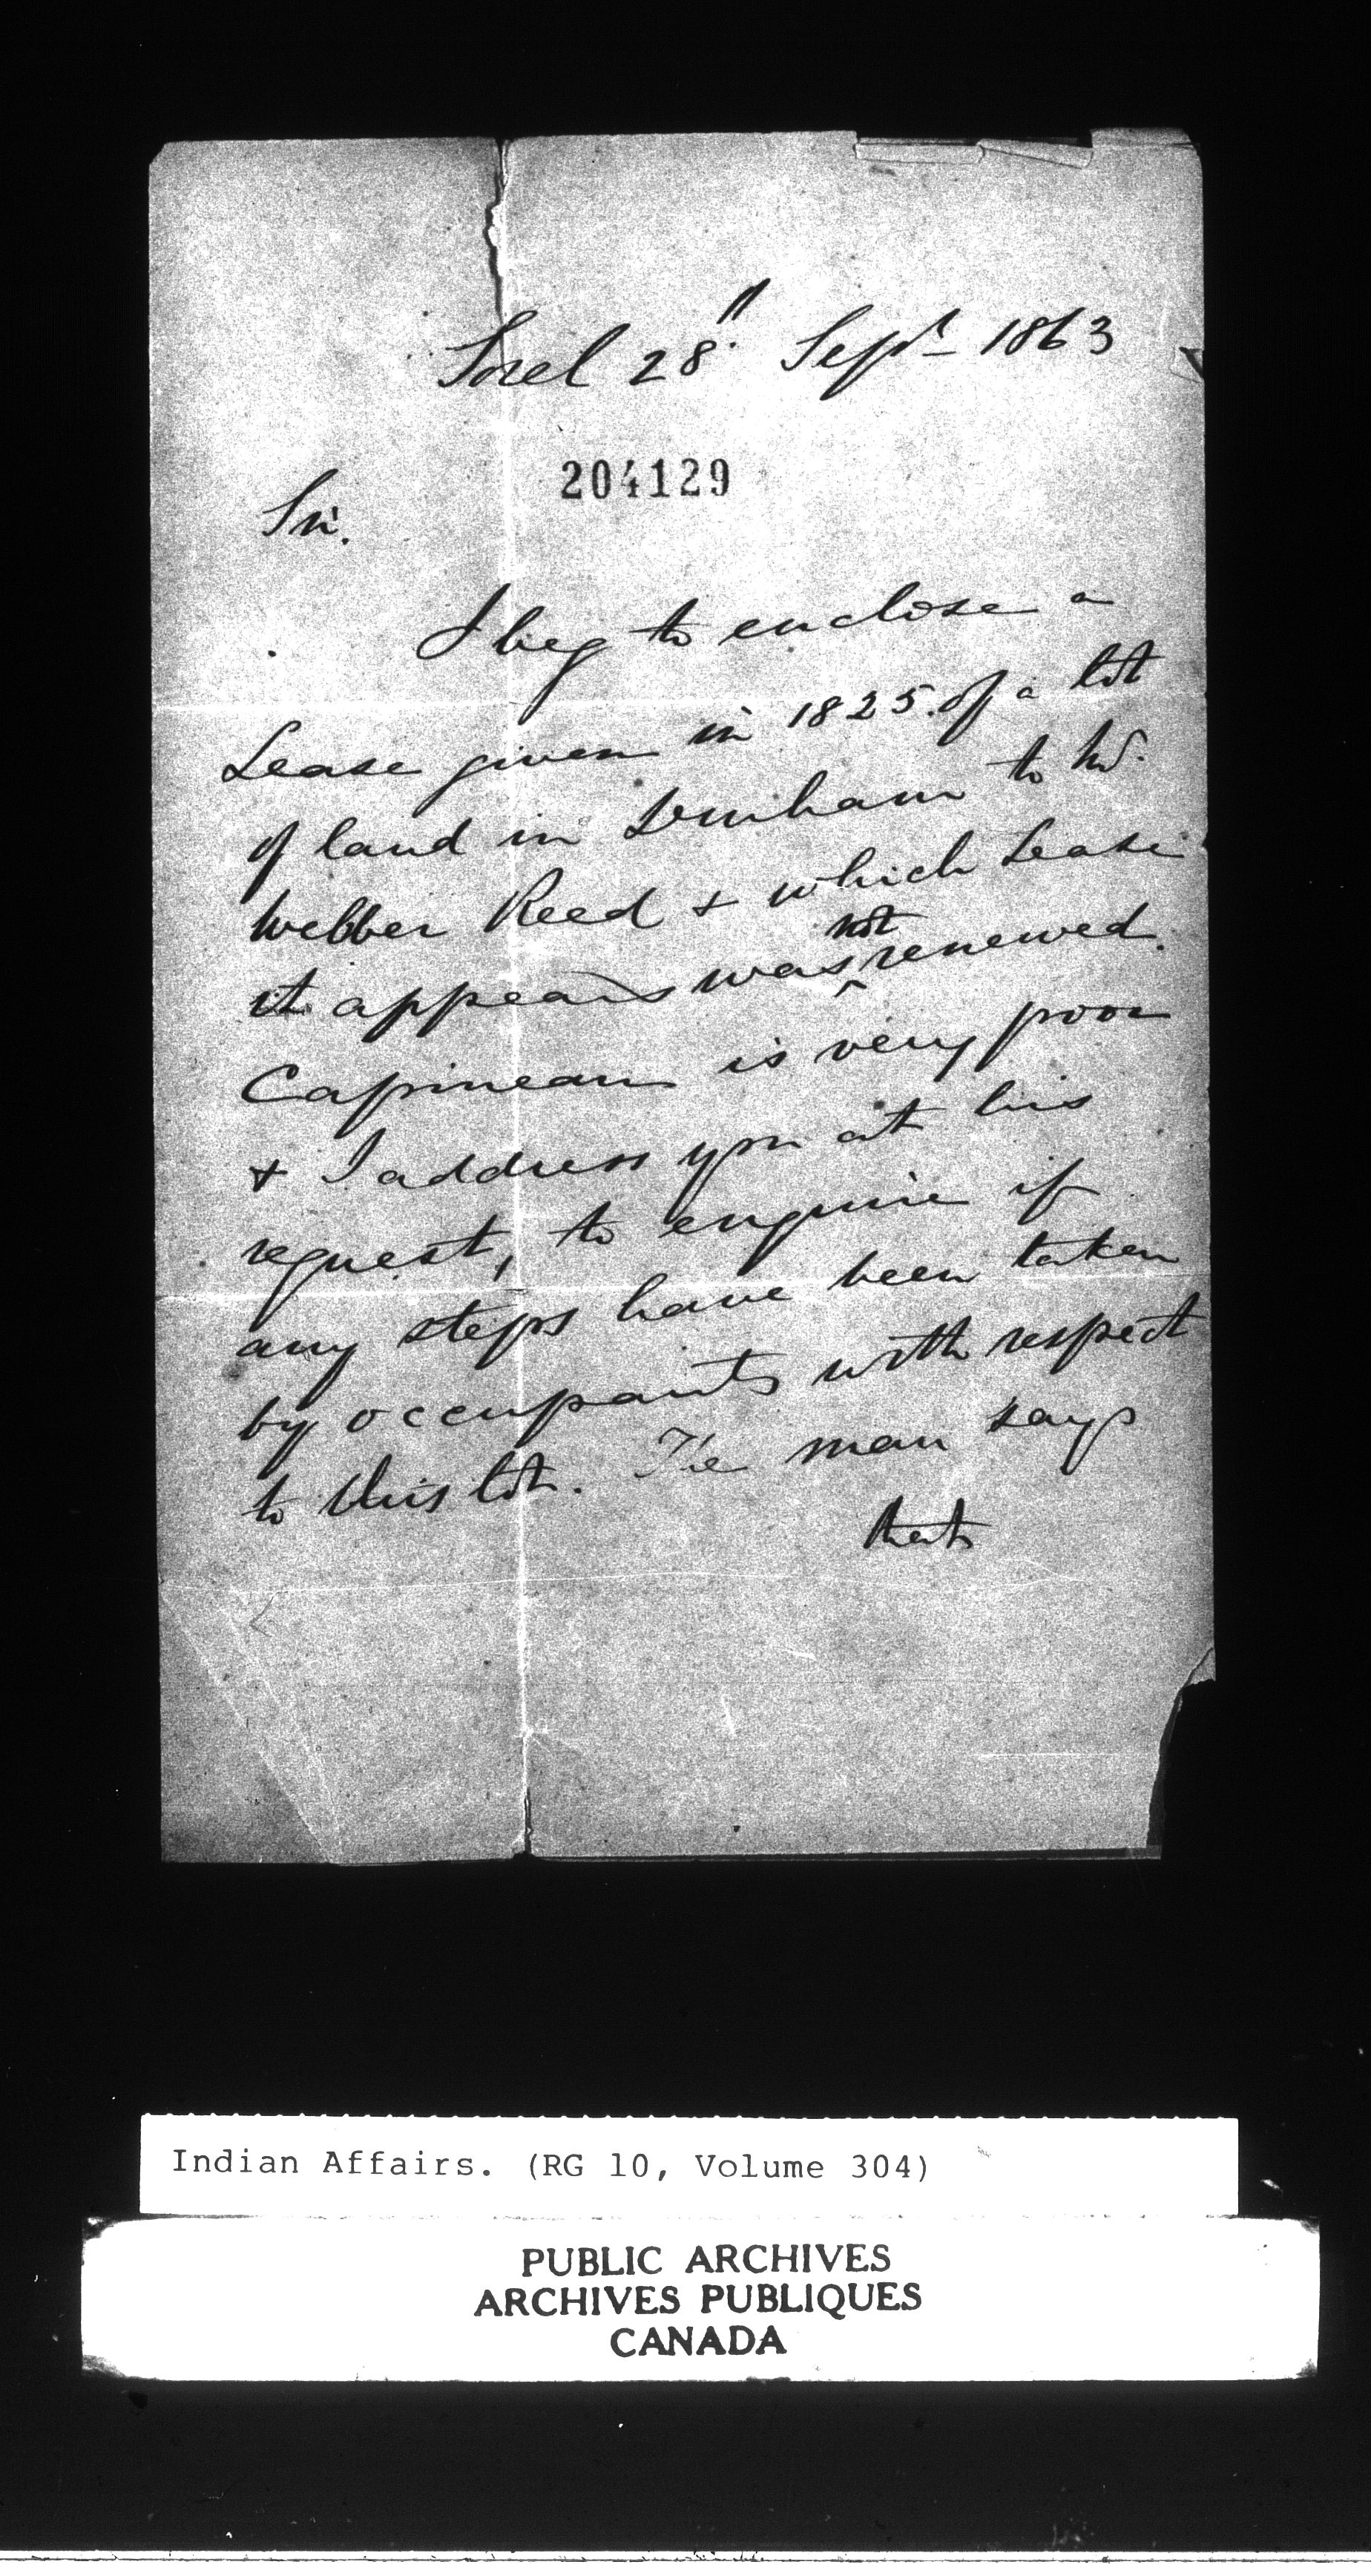 Sorel 28" Sept 1863
204129
Sir.
I beg to enclose a
Lease given in 1825. of a lot
of land in Durham to
Webber Reed & which Lease
it appears was not renewed.
Capineau is very poor
& I address you at his
request, to enquire if
any steps have been taken
by occupants with respect
to this lot. The man says
that
Indian Affairs. (RG 10, Volume 304)
PUBLIC ARCHIVES
ARCHIVES PUBLIQUES
CANADA